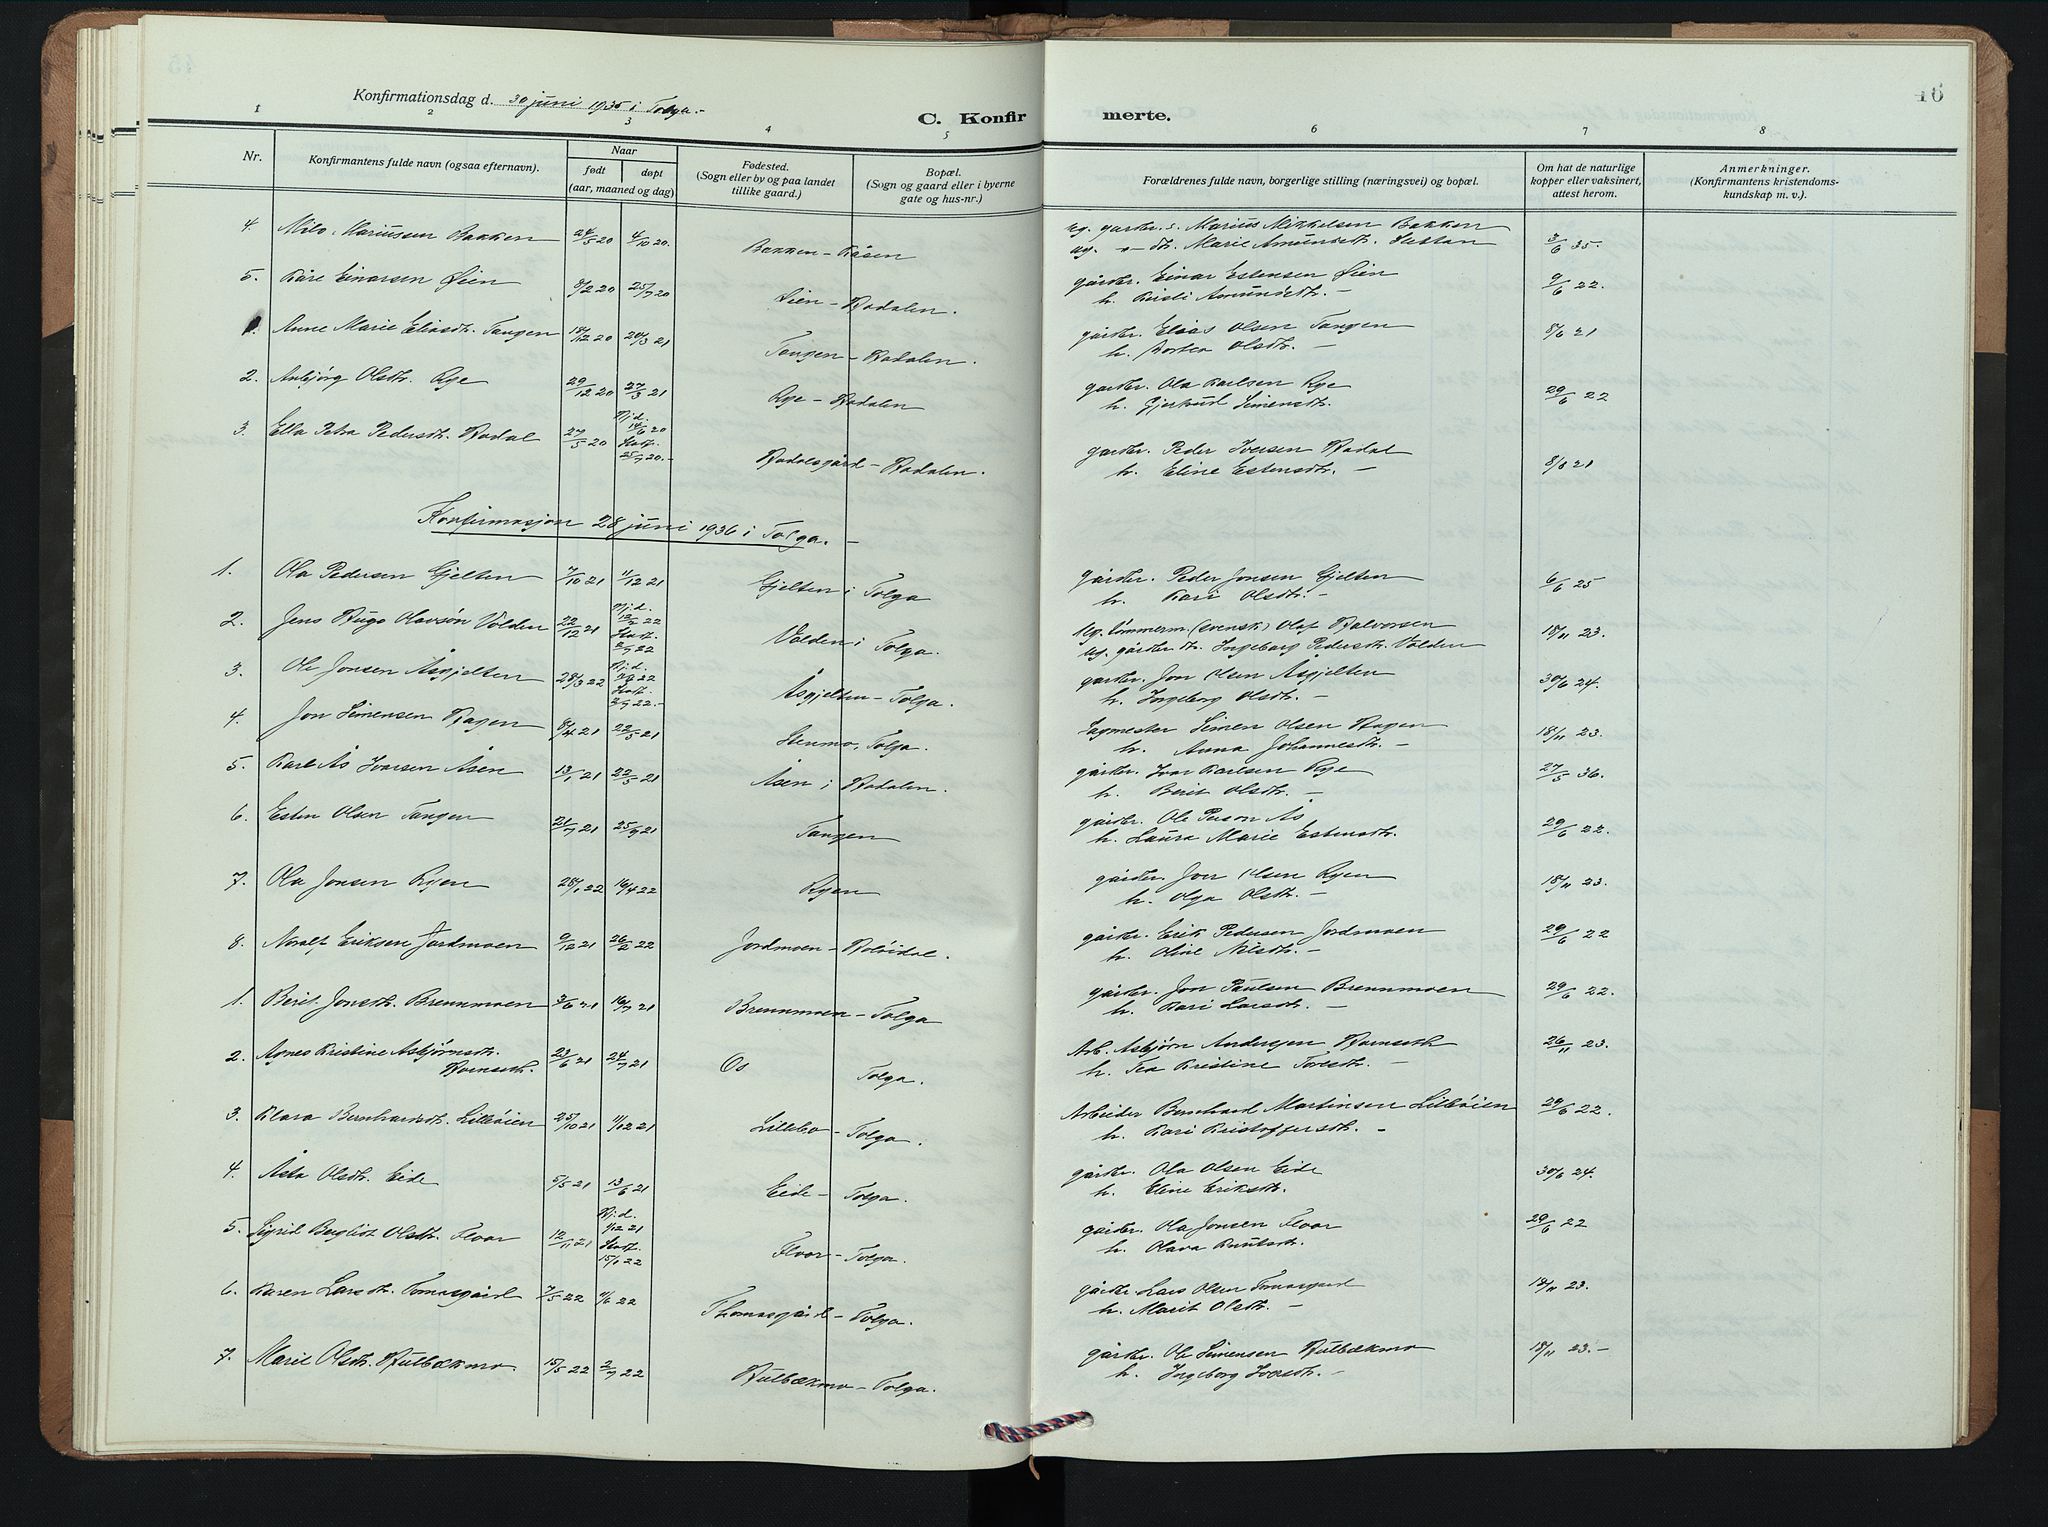 45
46
Konfirmationsdag d. 30 juni 1935 i Tolga.-
C. Konfirmerte.
1 2 3 4 5 6 7 8
Nr.
Konfirmantens fulde navn (ogsaa efternavn).
Naar
født døpt
(aar, maaned og dag)
Fødested.
(Sogn eller by og paa landet
tillike gaard.)
Bopæl.
(Sogn og gaard eller i byerne
gate og hus-nr.)
Forældrenes fulde navn, borgerlige stilling (næringsvei) og bopæl.
Om hat de naturlige
kopper eller vaksinert,
attest herom.
Anmerkninger.
(Konfirmantens kristendoms-
kundskap m. v.).
4. Milo Mariussen Bakken 24/5 20 4/10 20. Bakken - Kåsen ug. gårdbr. s. Marius Mikkelsen Bakken 3/6 35.
ug. - dtr. Marie Amundsdtr.
5. Kåre Einarsen Øien 8/2 20 25/7 20 Øien - Hodalen. gårdbr. Einar Estensen Øien 9/6 22.
h. Kirsti Amundsdtr. -
1. Anne Marie Eliasdtr. Tangen 18/12 20 20/3 21 Tangen - Hodalen. gårdbr. Elias Olsen Tangen 8/6 21
h. Olsdtr. -
2. Anbjørg Olsdtr. Rye 29/12 20 27/3 21 Rye - Hodalen gårdbr. Ola Karlsen Rye 29/6 22
h. Gjertrud Simensdtr.
3. Ella Petra Pedersdtr. Hodal 27/5 20 Hj.d. 14/6 20 Stadf. 25/7 20.- Hodalsgård - Hodalen. gårdbr. Peder Iversen Hodal 8/8 21
h. Eline Estensdtr. -
Konfirmasjon 28 juni 1936 i Tolga. -
1. Ola Pedersen Gjelten 7/10 21 11/12 21 Gjelten i Tolga gårdbr. Peder Jonsen Gjelten 6/6 25
h. Kari Olsdtr. -
2. Jens Hugo Olavsøn Volden 22/12 21 Hj.d. 22 Stadf. 2/7 22 Volden i Tolga. ug. tømmerm. (svensk) Olaf Halvorsen 18/11 23.
ug. gårdbr. dtr. Ingeborg Pedersdtr. Volden
3. Ole Jonsen Åsgjelten 28/3 22 Hj.d. 22 Stadf. 2/7 22.- Åsgjelten - Tolga. gårdbr. Jon Olsen Åsgjelten 30/6 24.
h. Ingeborg Olsdtr. -
4. Jon Simensen Hagen 8/4 21 22/5 21 Stenmo, Tolga. Sagmester Simen Olsen Hagen 18/11 23.
h. Anna Johannesdtr. -
5. Karl Ås Ivarsen Åsen 13/1 21 22/5 21 Åsen i Hodalen. gårdbr. Ivar Karlsen Rye 27/5 36.
h. Berit Olsdtr. -
6. Esten Olsen Tangen 21/7 21 25/9 21 Tangen gårdbr. Ole Person Ås 29/6 22.
h. Laura Marie Estensdtr.
7. Ola Jonsen Ryen 28/1 22 16/4 22 Ryen gårdbr. Jon Olsen Ryen 18/11 23.
h. Olga Olsdtr. -
8. Noralf Eriksen Jordmoen 9/12 21 26/2 22 Jordmoen - Holøidal. gårdbr. Erik Pedersen Jordmoen 29/6 22
h. Oline Nilsdtr. -
1. Berit Jonsdtr. Brennmoen 3/6 21 16/7 21 Brennmoen - Tolga gårdbr. Jon Paulsen Brennmoen 29/6 22.
h. Kari Larsdtr. -
2. Agnes Kristine Asbjørnsdtr. 23/6 21 24/7 21 Os Tolga. Arb. Asbjørn Andersen Hornseth 26/11 23.
Hornseth. h. Tea Kristine Toresdtr. -
3. Klara Bernhardsdtr. Lilleøien 25/10 21 11/12 21 Lillebo - Tolga. Arbeider Bernhard Martinsen Lilleøien 29/6 22.
h. Kari Kristoffersdtr. -
4. Åsta Olsdtr. Eide 5/5 21 13/6 21 Eide - Tolga. gårdbr. Ola Olsen Eide 30/6 24.
h. Eline Eriksdtr.
5. Sigrid Bergliot Olsdtr. Floor 12/11 21 Hj.d. 1/12 21 Stadf. 15/1 22 Floor - Tolga. gårdbr. Ola Jonsen Floor 29/6 22
h. Olava Knutsdtr.
6. Karen Larsdtr. Tomasgård 7/5 22 4/6 22 Thomasgård - Tolga. gårdbr. Lars Olsen Tomasgård 18/11 23.
h. Marit Olsdtr. -
7. Marit Olsdtr. Hulbækmo. 15/5 22 2/7 22 Hulbækmo - Tolga. gårdbr. Ole Simensen Hulbækmo 18/11 23.-
h. Ingeborg Ivarsdtr. -